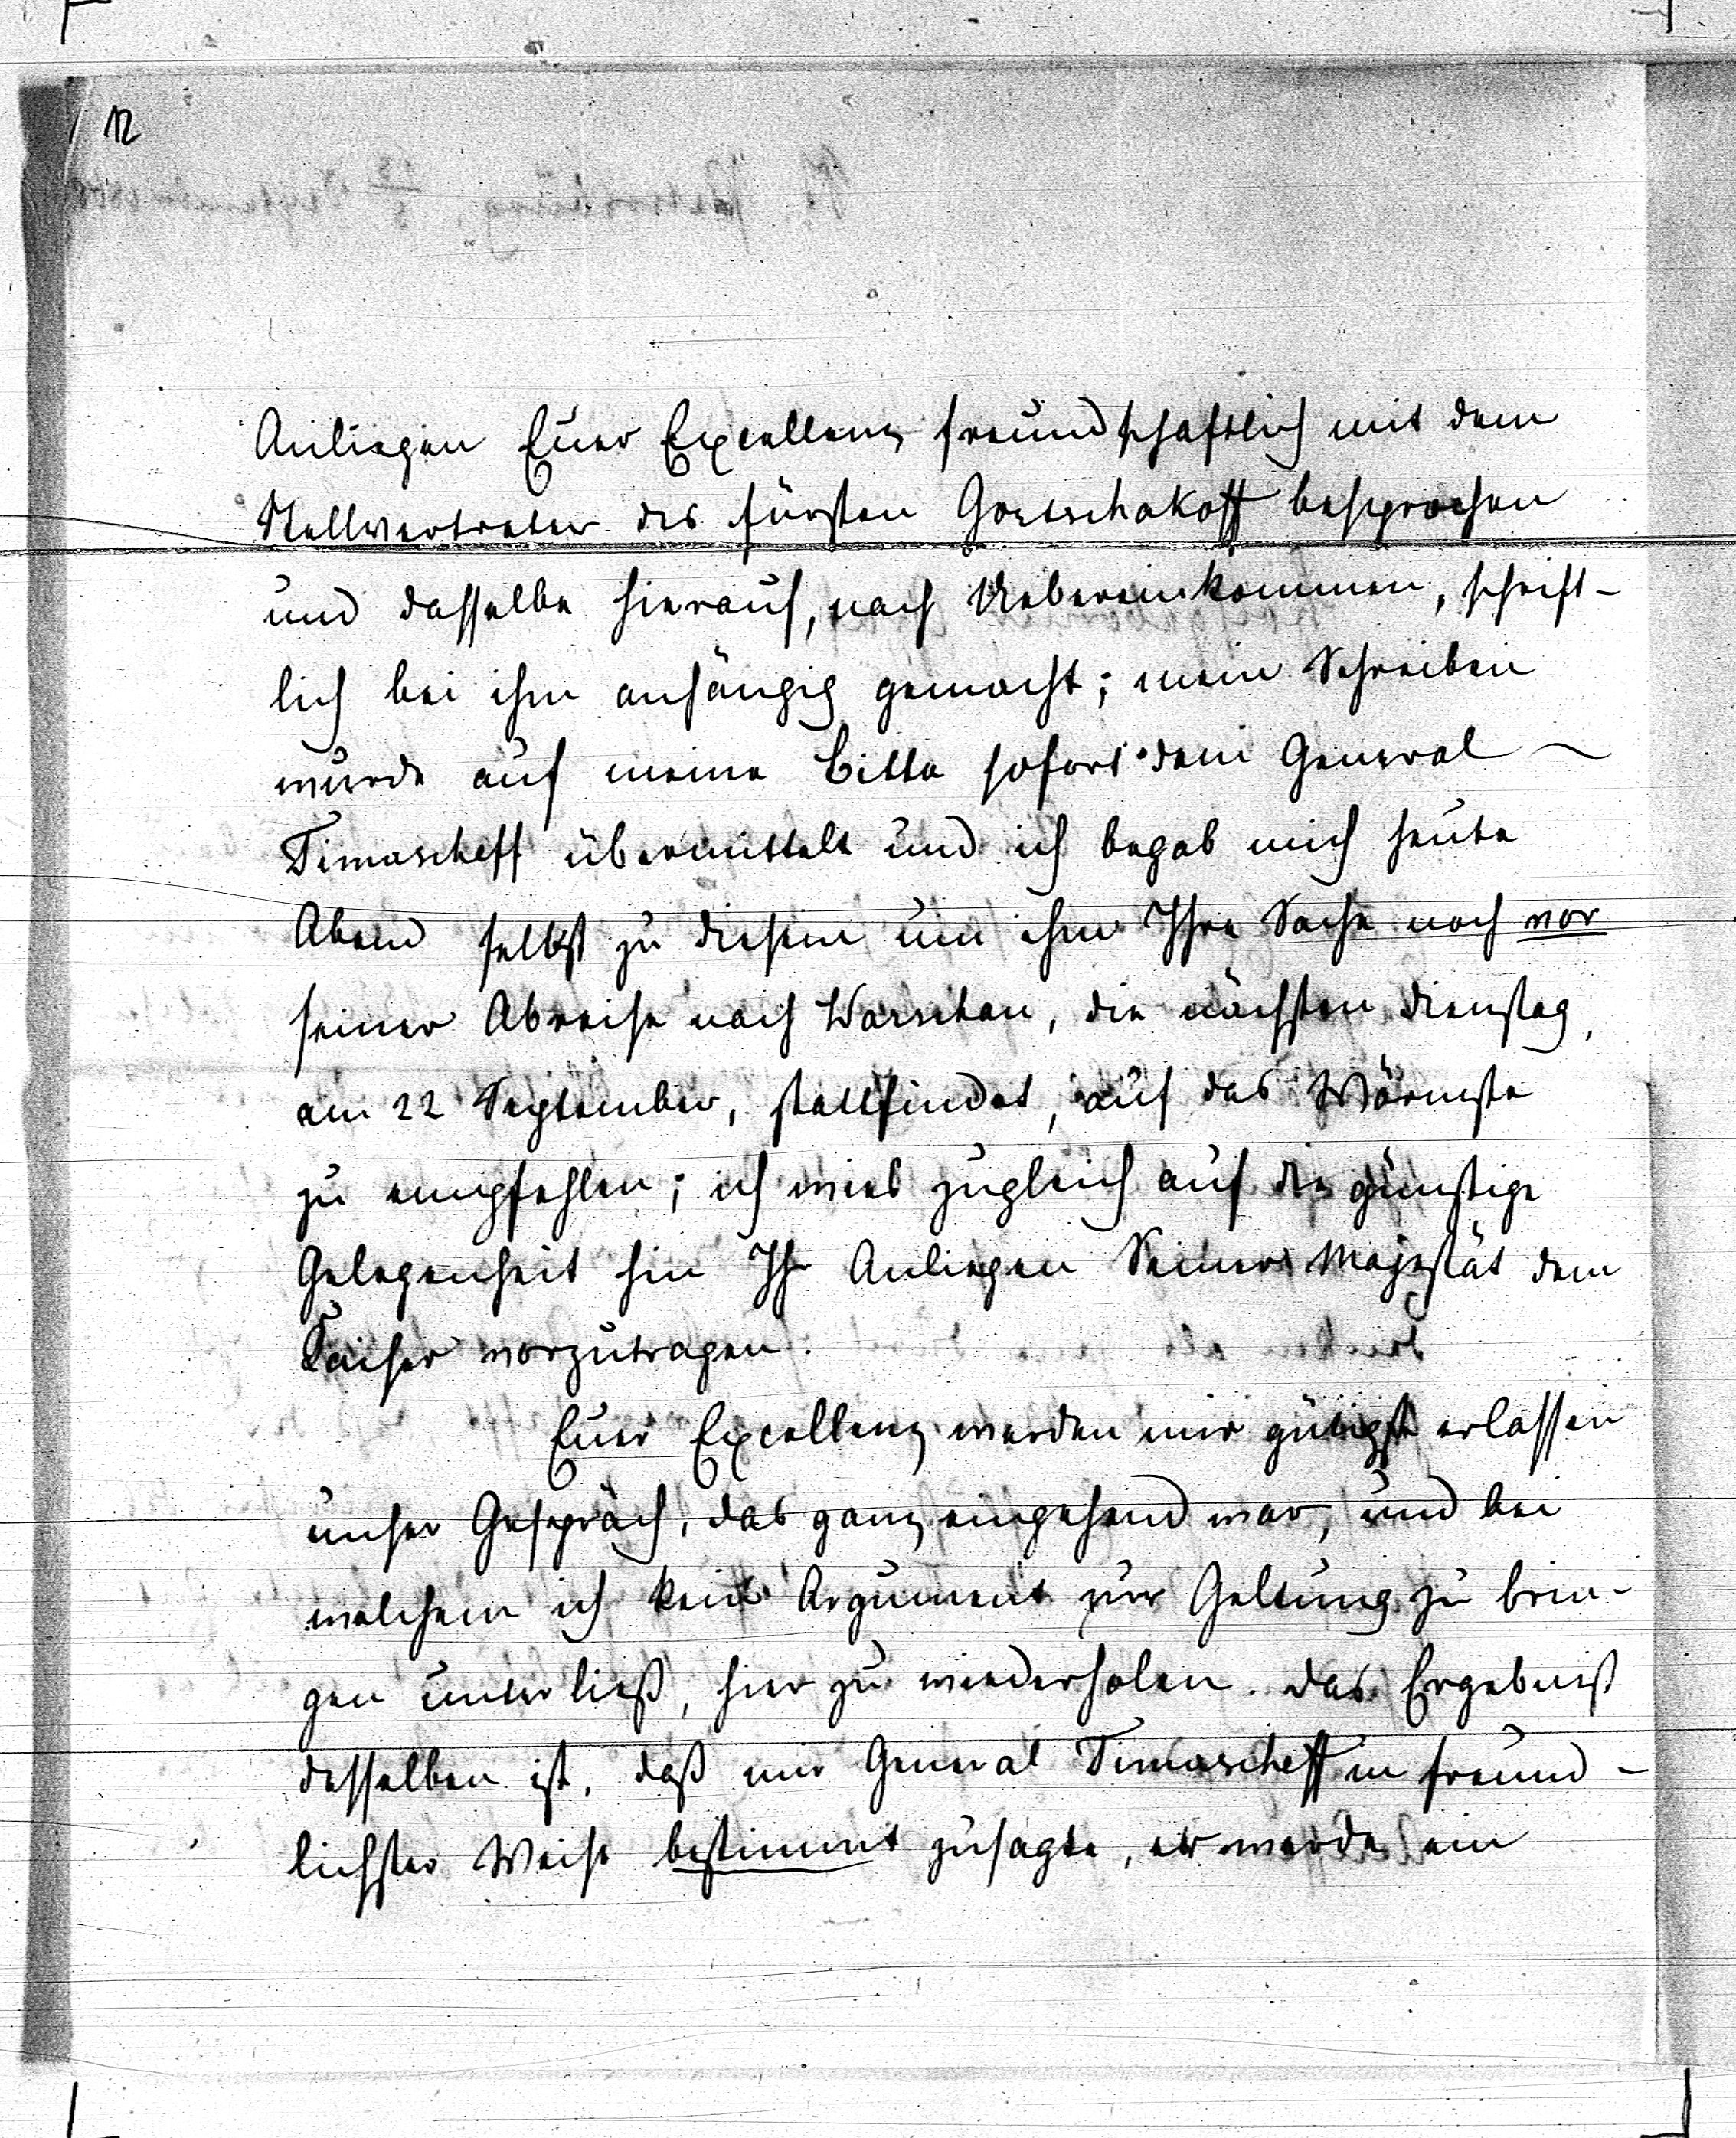 12
Anliegen Euer Excellenz freundschaftlich mit dem
Stellvertreter des Fürsten Gortschakoff besprochen
und dasselbe hierauf, nach Uebereinkommen, schrift-
lich bei ihm anhängig gemacht; mein Schreiben
wurde auf meine Bitte sofort dem General
Timascheff übermittelt und ich begab mich heute
Abend selbst zu diesem um ihm Ihre Sache noch vor
seiner Abreise nach Warschau, die nächsten Dienstag,
am 22 September, stattfindet, auf das Wärmste
zu empfehlen; ich wies zugleich auf die günstige
Gelegenheit hin Ihr Anliegen Seiner Majestät dem
Kaiser vorzutragen.
Euer Excellenz werden mir gütigst erlassen
unser Gespräch, das ganz eingehend war, und bei
welchem ich kein Argument zur Geltung zu brin-
gen unterließ, hier zu wiederholen. Das Ergebniß
desselben ist, daß mir General Timascheff in freund-
lichster Weise bestimmt zusagte, er werde ein